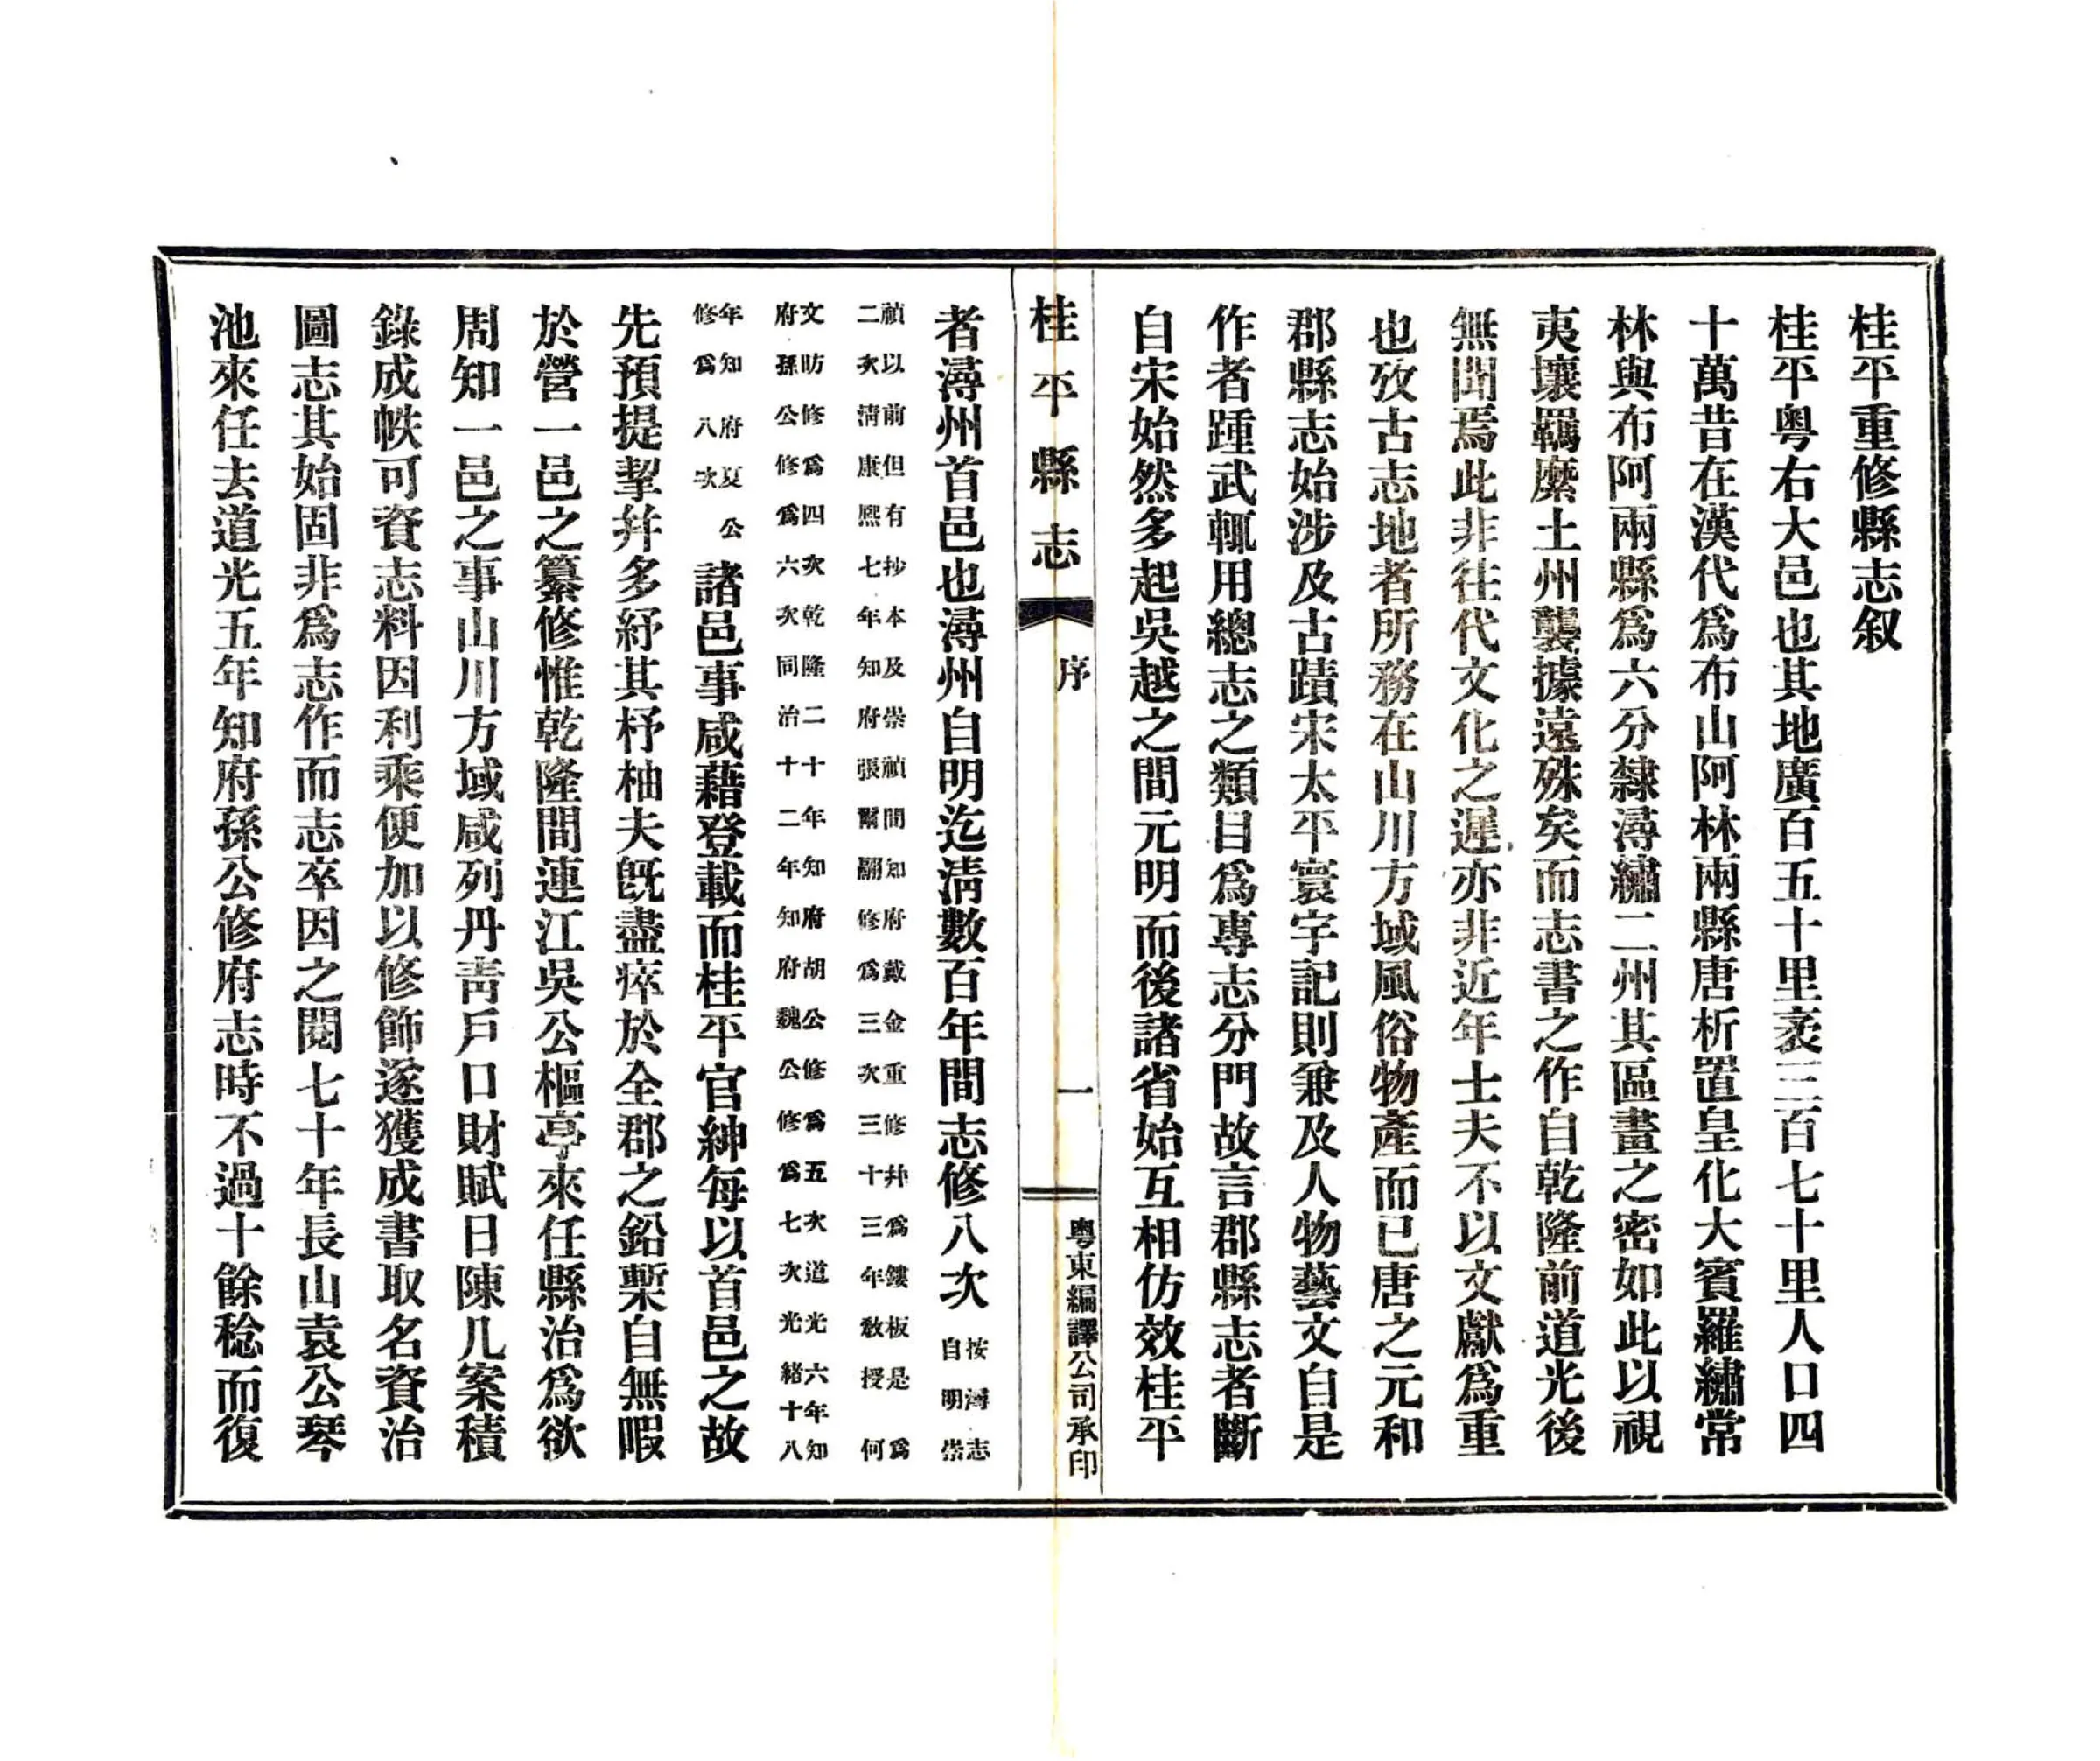 桂平重修縣志叙
桂平粤右大邑也其地廣百五十里袤三百七十里人口四
十萬昔在漢代爲布山阿林兩縣唐析置皇化大賓羅繡常
林與布阿兩縣爲六分隸潯繡二州其區畫之密如此以視
夷壤羈縻土州襲據遠殊矣而志書之作自乾隆前道光後
無聞焉此非往代文化之遲亦非近年士夫不以文獻爲重
也攷古志地者所務在山川方域風俗物產而已唐之元和
郡縣志始涉及古蹟宋太平寰宇記則兼及人物藝文自是
作者踵武輒用總志之類目爲專志分門故言郡縣志者斷
自宋始然多起吳越之間元明而後諸省始互相仿效桂平
桂平縣志
序
一
粤東編譯公司承印
者潯州首邑也潯州自明迄淸數百年間志修八次
按潯志
自明崇
禎以前但有抄本及崇禎間知府戴金重修幷爲鏤板是爲
二次淸康熙七年知府張爾翮修爲三次三十三年敎授何
文昉修爲四次乾隆二十年知府胡公修爲五次道光六年知
府孫公修爲六次同治十二年知府魏公修爲七次光緒十八
年知府夏公
修爲八次
諸邑事咸藉登載而桂平官紳每以首邑之故
先預提挈幷多紓其杼柚夫旣盡瘁於全郡之鉛槧自無暇
於營一邑之纂修惟乾隆間連江吳公樞亭來任縣治爲欲
周知一邑之事山川方域咸列丹靑戶口財賦日陳几案積
錄成帙可資志料因利乘便加以修飾遂獲成書取名資治
圖志其始固非爲志作而志卒因之閱七十年長山袁公琴
池來任去道光五年知府孫公修府志時不過十餘稔而復